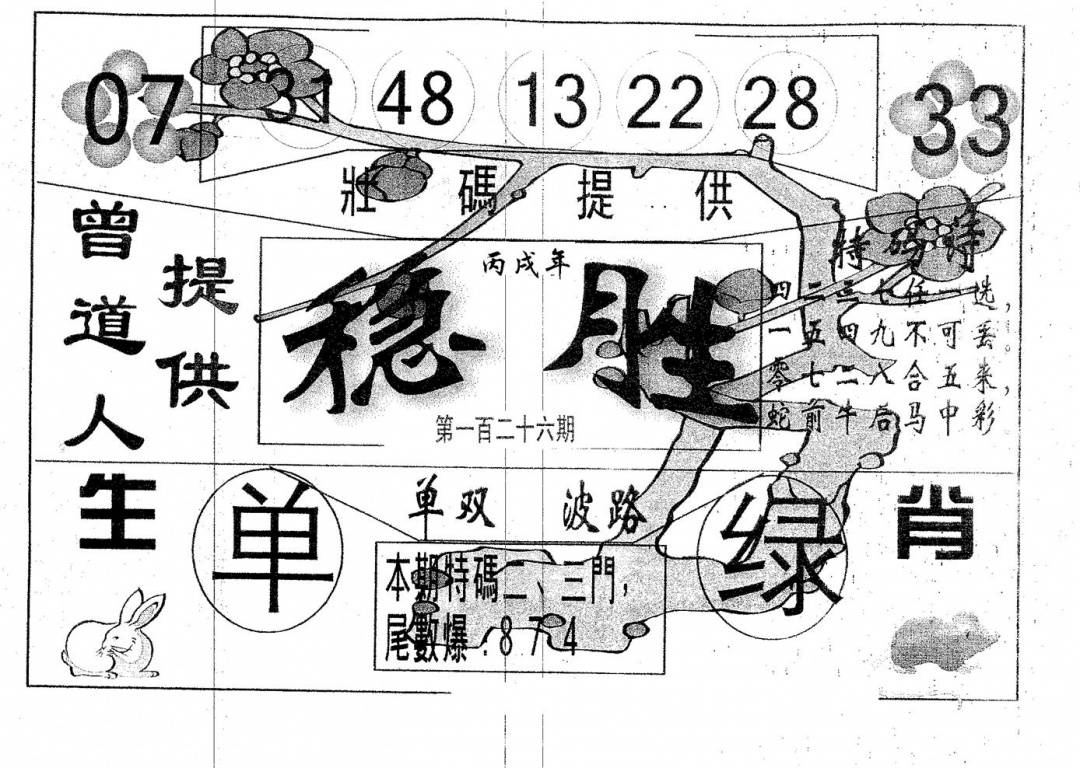 07 31 48 13 22 28 33
壯碼提供
曾道人
提供
丙戌年
稳胜
第一百二十六期
特码诗
四二三七任一选，
一五四九不可丢。
零七二八合五来，
蛇前牛后马中彩
生肖
单双 波路
单
绿
本期特碼二、三門，
尾數爆：8 7 4